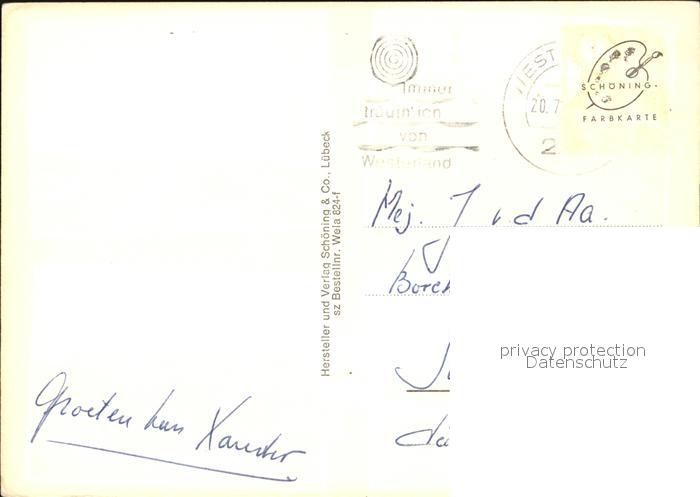 Immer
träum' ich
von
Westerland
WEST
20.7
2
SCHÖNING-
FARBKARTE
Hersteller und Verlag Schöning & Co., Lübeck
sz Bestellnr. Wela 824-f
Mej. J v.d Aa.
privacy protection
Datenschutz
Groeten van Xander